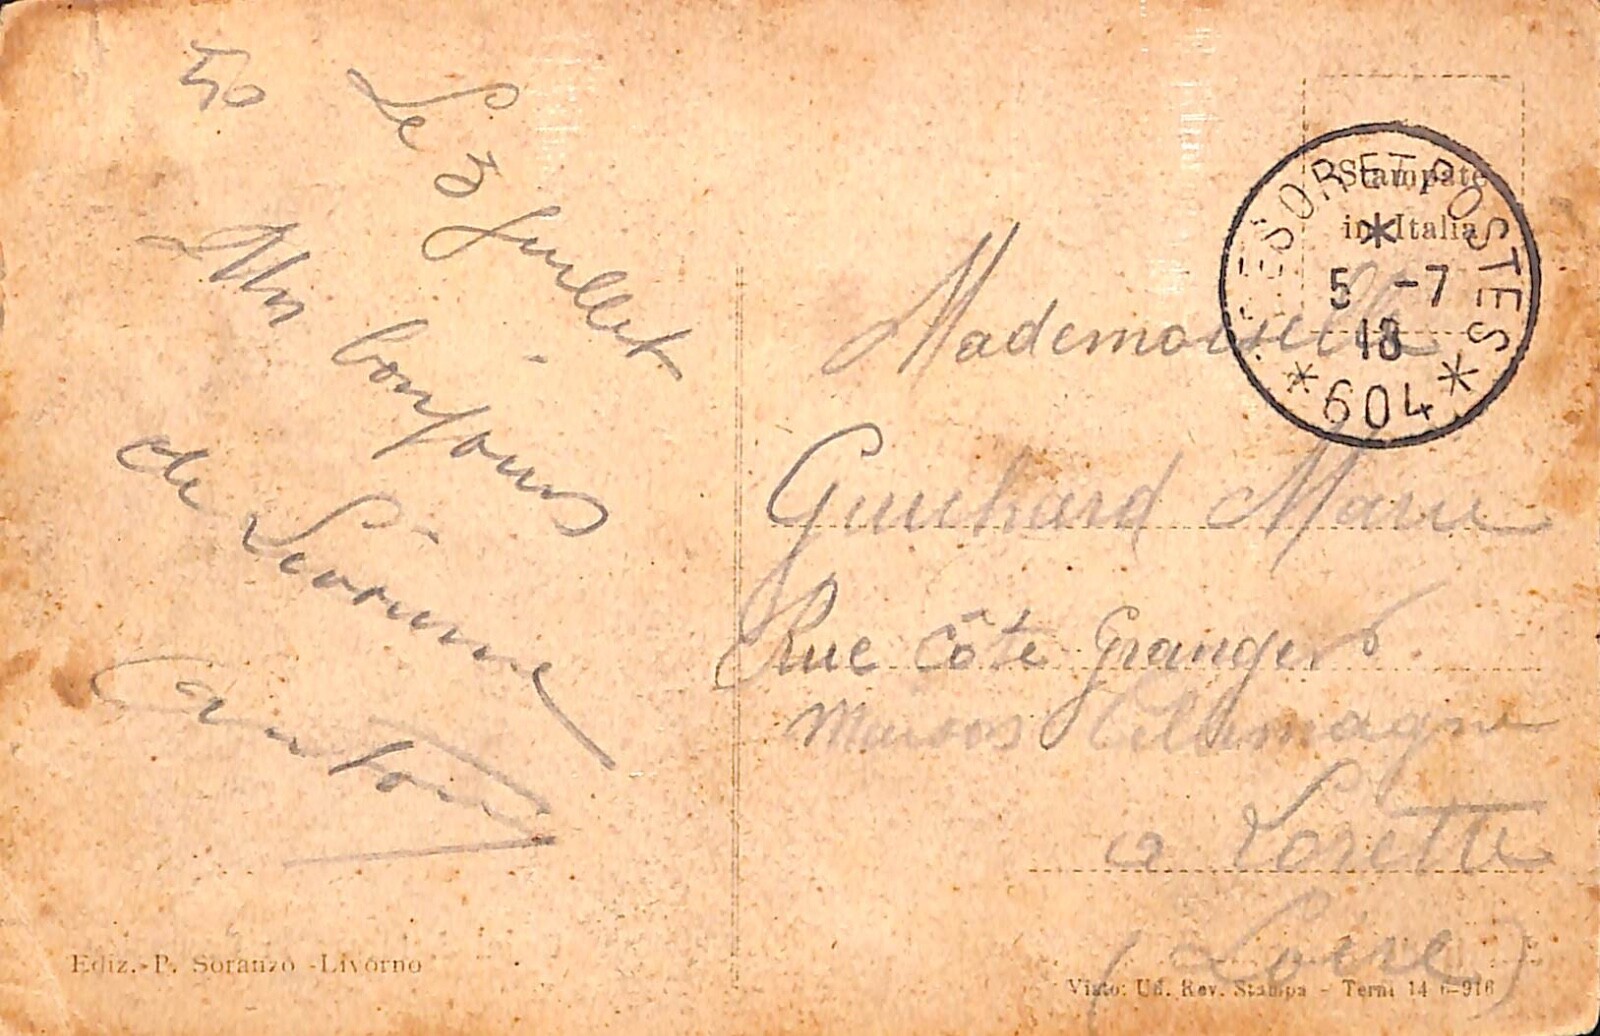 50
Le 3 Juillet
Un bonjour
de Livourne
Antony
Ediz.-P. Soranzo -Livorno
Stampate
in Italia
TRESOR ET POSTES
5 -7
18
* 604 *
Mademoiselle
Guichard Marie
Rue Côte Granger
Maison
à Lorette
(Loire)
Visto: Uf. Rev. Stampa - Terni 14 6-916